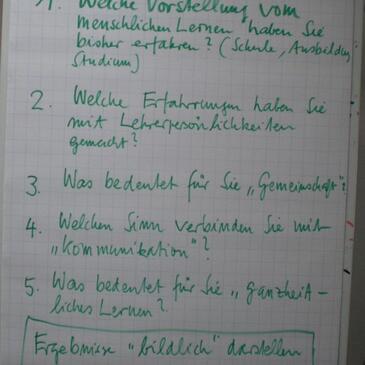 1. Welche Vorstellung vom
menschlichen Lernen haben Sie
bisher erfahren? (Schule, Ausbildung
Studium)
2. Welche Erfahrungen haben Sie
mit Lehrerpersönlichkeiten
gemacht?
3. Was bedeutet für Sie „Gemeinschaft"?
4. Welchen Sinn verbinden Sie mit
„Kommunikation"?
5. Was bedeutet für Sie „ganzheit-
liches Lernen?
Ergebnisse "bildlich" darstellen